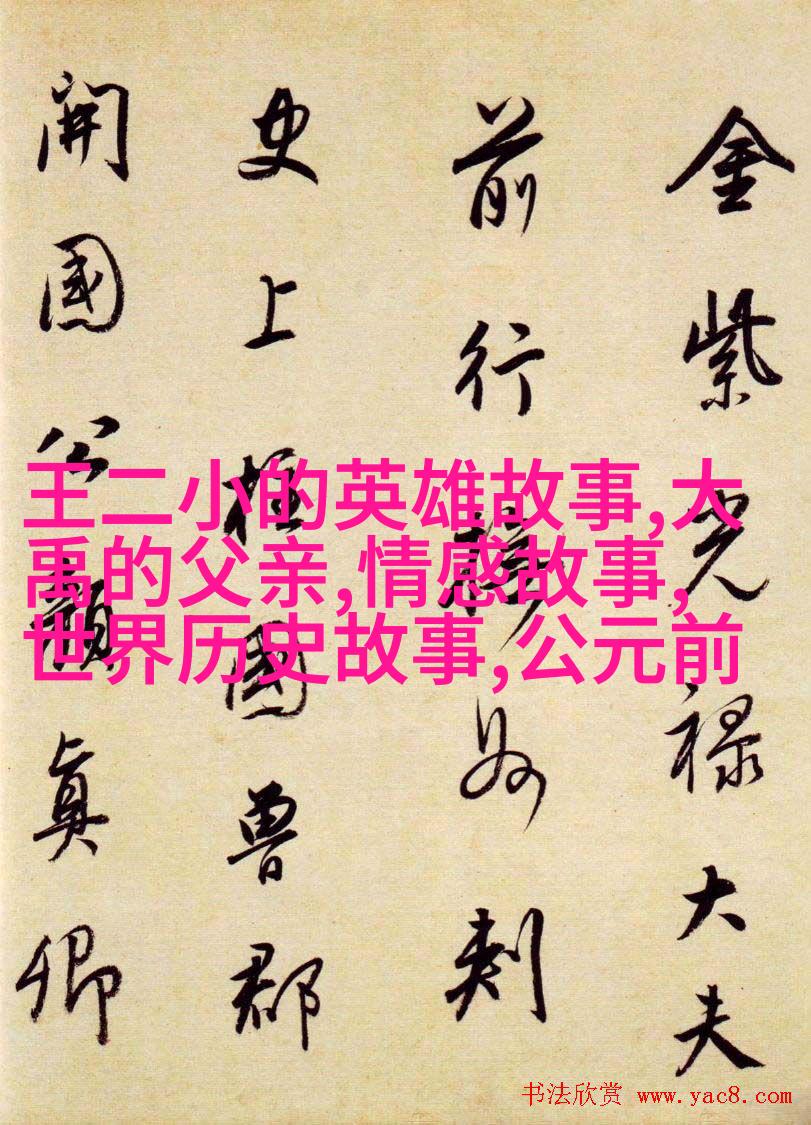 金紫光禄大夫
前行州刺
史上柱國魯郡
開國公顏真卿
王二小的英雄故事,大
禹的父亲,情感故事,
世界历史故事,公元前
书法欣赏 www.yac8.com